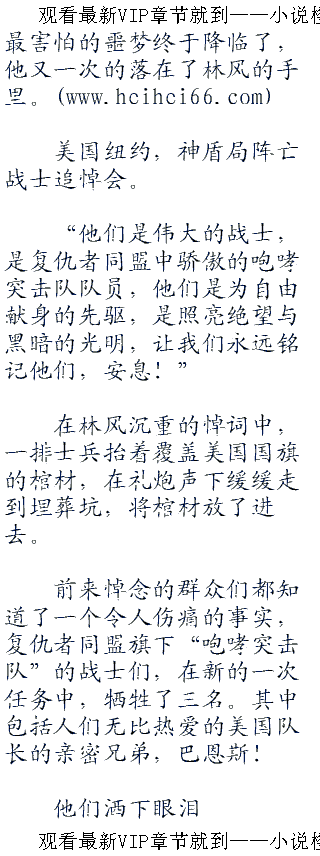 观看最新VIP章节就到——小说检
最害怕的噩梦终于降临了，
他又一次的落在了林风的手
里。(www.hcihci66.com)
美国纽约，神盾局阵亡
战士追悼会。
“他们是伟大的战士，
是复仇者同盟中骄傲的咆哮
突击队队员，他们是为自由
献身的先驱，是照亮绝望与
黑暗的光明，让我们永远铭
记他们，安息！”
在林风沉重的悼词中，
一排士兵抬着覆盖美国国旗
的棺材，在礼炮声下缓缓走
到埋葬坑，将棺材放了进
去。
前来悼念的群众们都知
道了一个令人伤痛的事实，
复仇者同盟旗下“咆哮突击
队”的战士们，在新的一次
任务中，牺牲了三名。其中
包括人们无比热爱的美国队
长的亲密兄弟，巴恩斯！
他们洒下眼泪
观看最新VIP章节就到——小说